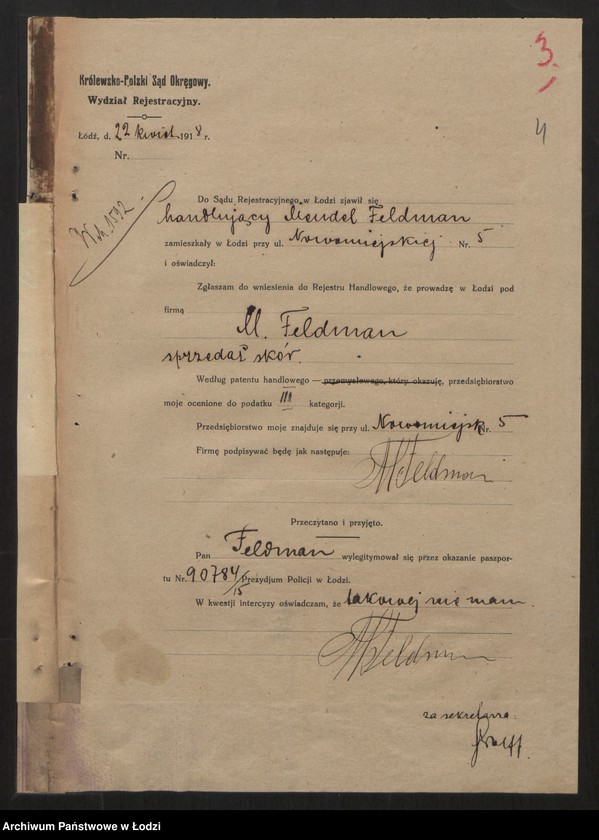 3
4
Królewsko-Polski Sąd Okręgowy.
Wydział Rejestracyjny.
Łódź, d. 22 kwiet. 1918 r.
Nr.
Do Sądu Rejestracyjnego w Łodzi zjawił się
handlujący Mendel Feldman
zamieszkały w Łodzi przy ul. Nowomiejskiej Nr. 5
i oświadczył:
Zgłaszam do wniesienia do Rejestru Handlowego, że prowadzę w Łodzi pod
firmą
M. Feldman
sprzedaż skór.
Według patentu handlowego — przemysłowego, który okazuję, przedsiębiorstwo
moje ocenione do podatku III kategorji.
Przedsiębiorstwo moje znajduje się przy ul. Nowomiejsk Nr. 5
Firmę podpisywać będę jak następuje:
M Feldman
Przeczytano i przyjęto.
Pan Feldman wylegitymował się przez okazanie paszpor-
tu Nr. 90784/15 Prezydjum Policji w Łodzi.
W kwestji intercyzy oświadczam, że takowej nie mam.
M Feldman
za sekretarza
Archiwum Państwowe w Łodzi